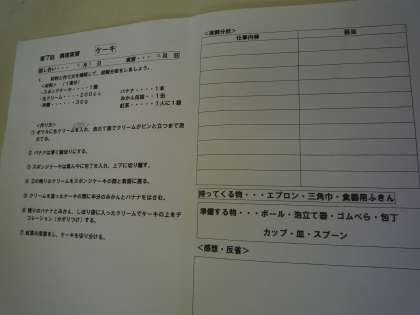 第7回 調理実習 ケーキ
話し合い・・・ 月 日 実習・・・ 月 日
材料と作り方を確認して、役割分担をしましょう。
<材料> (1班分)
・スポンジケーキ・・・・1個
・生クリーム・・・・200cc
・砂糖・・・・・30g
バナナ・・・・1本
みかん缶詰・・1缶
紅茶・・・・1人に1個
<作り方>
① ボウルに生クリームを入れ、泡立て器でクリームがピンと立つまで泡立てる。
② バナナは薄く輪切りにする。
③ スポンジケーキは真ん中に包丁を入れ、上下に切り離す。
④ ①の残りのクリームをスポンジケーキの間と表面に塗る。
⑤ クリームを塗ったケーキの間に半分のみかんとバナナをはさむ。
⑥ 残りのバナナとみかん、しぼり袋に入ったクリームでケーキの上をデコレーション(かざりつけ)する。
⑦ 紅茶の用意をし、ケーキを切り分ける。
<役割分担>
仕事内容
担当
持ってくる物・・・エプロン・三角巾・食器用ふきん
準備する物・・・ボール・泡立て器・ゴムべら・包丁
カップ・皿・スプーン
<感想・反省>